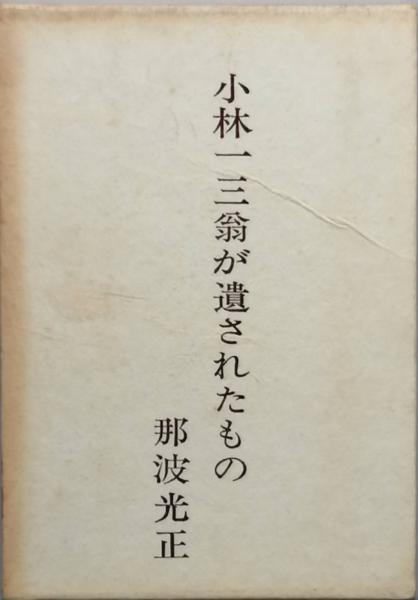 小林一三翁が遺されたもの
那波光正